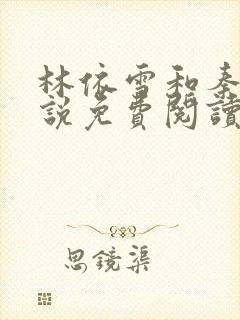 林依雪和秦
說免費閱讀
思鏡渠